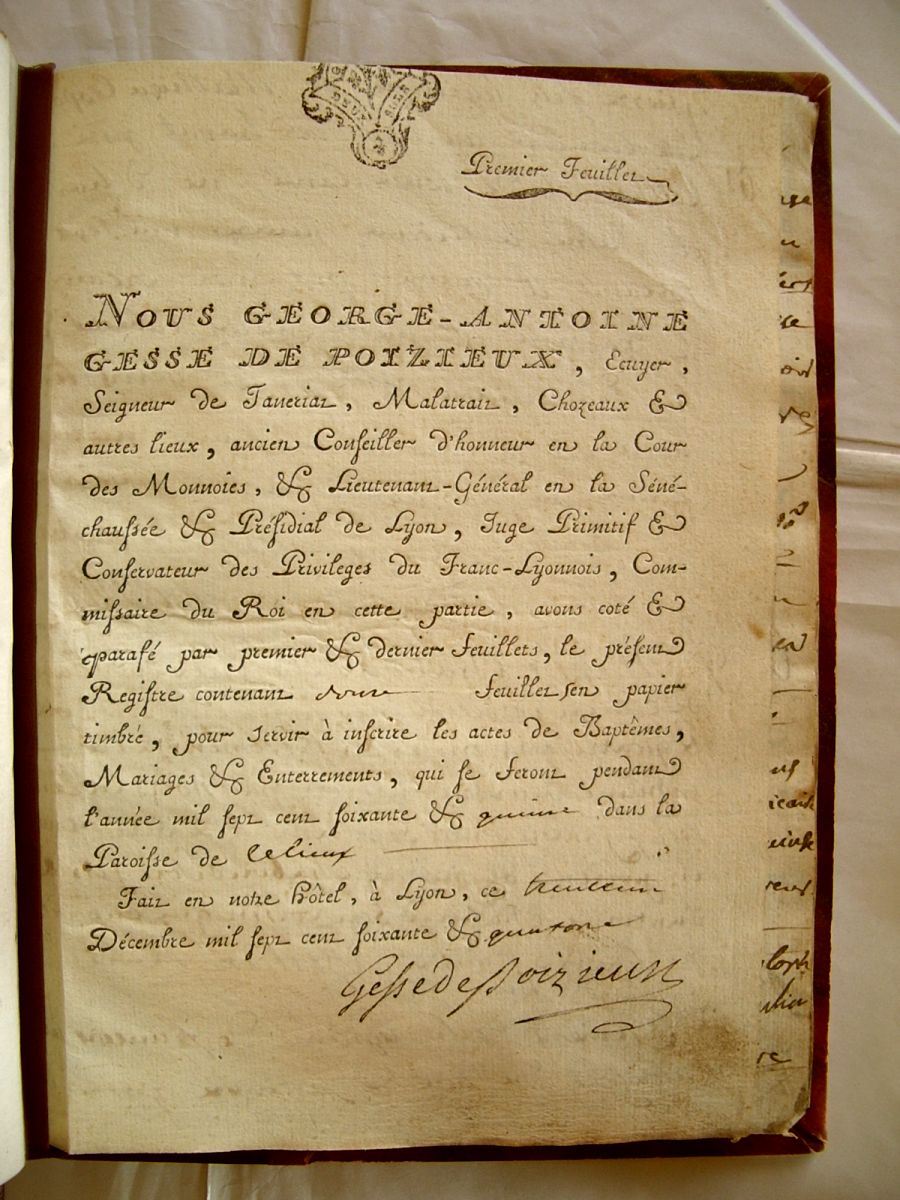 DEUX SOLS
Premier Feuillet
NOUS GEORGE-ANTOINE
GESSE DE POIZIEUX, Ecuyer,
Seigneur de Taneriat, Malatrait, Chozeaux &
autres lieux, ancien Conſeiller d'honneur en la Cour
des Monnoies, & Lieutenant-Général en la Séné-
chauſſée & Préſidial de Lyon, Juge Primitif &
Conſervateur des Privileges du Franc-Lyonnois, Com-
miſſaire du Roi en cette partie, avons coté &
parafé par premier & dernier feuillets, le préſent
Regiſtre contenant douze feuillets en papier
timbré, pour servir à inſcrire les actes de Baptêmes,
Mariages & Enterrements, qui ſe feront pendant
l'année mil ſept cent ſoixante & quinze dans la
Paroiſſe de
Fait en notre hôtel, à Lyon, ce trente un
Décembre mil ſept cent ſoixante & quatorze
Geſſe de Poizieux